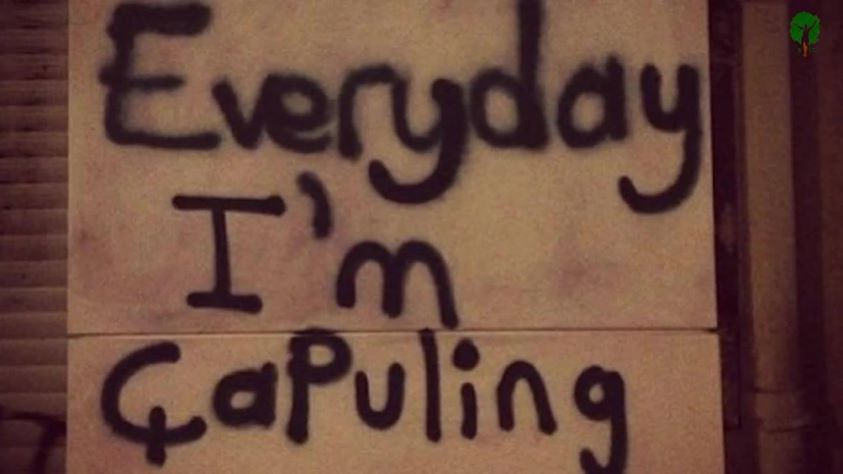 Everyday
I'm
Çapuling